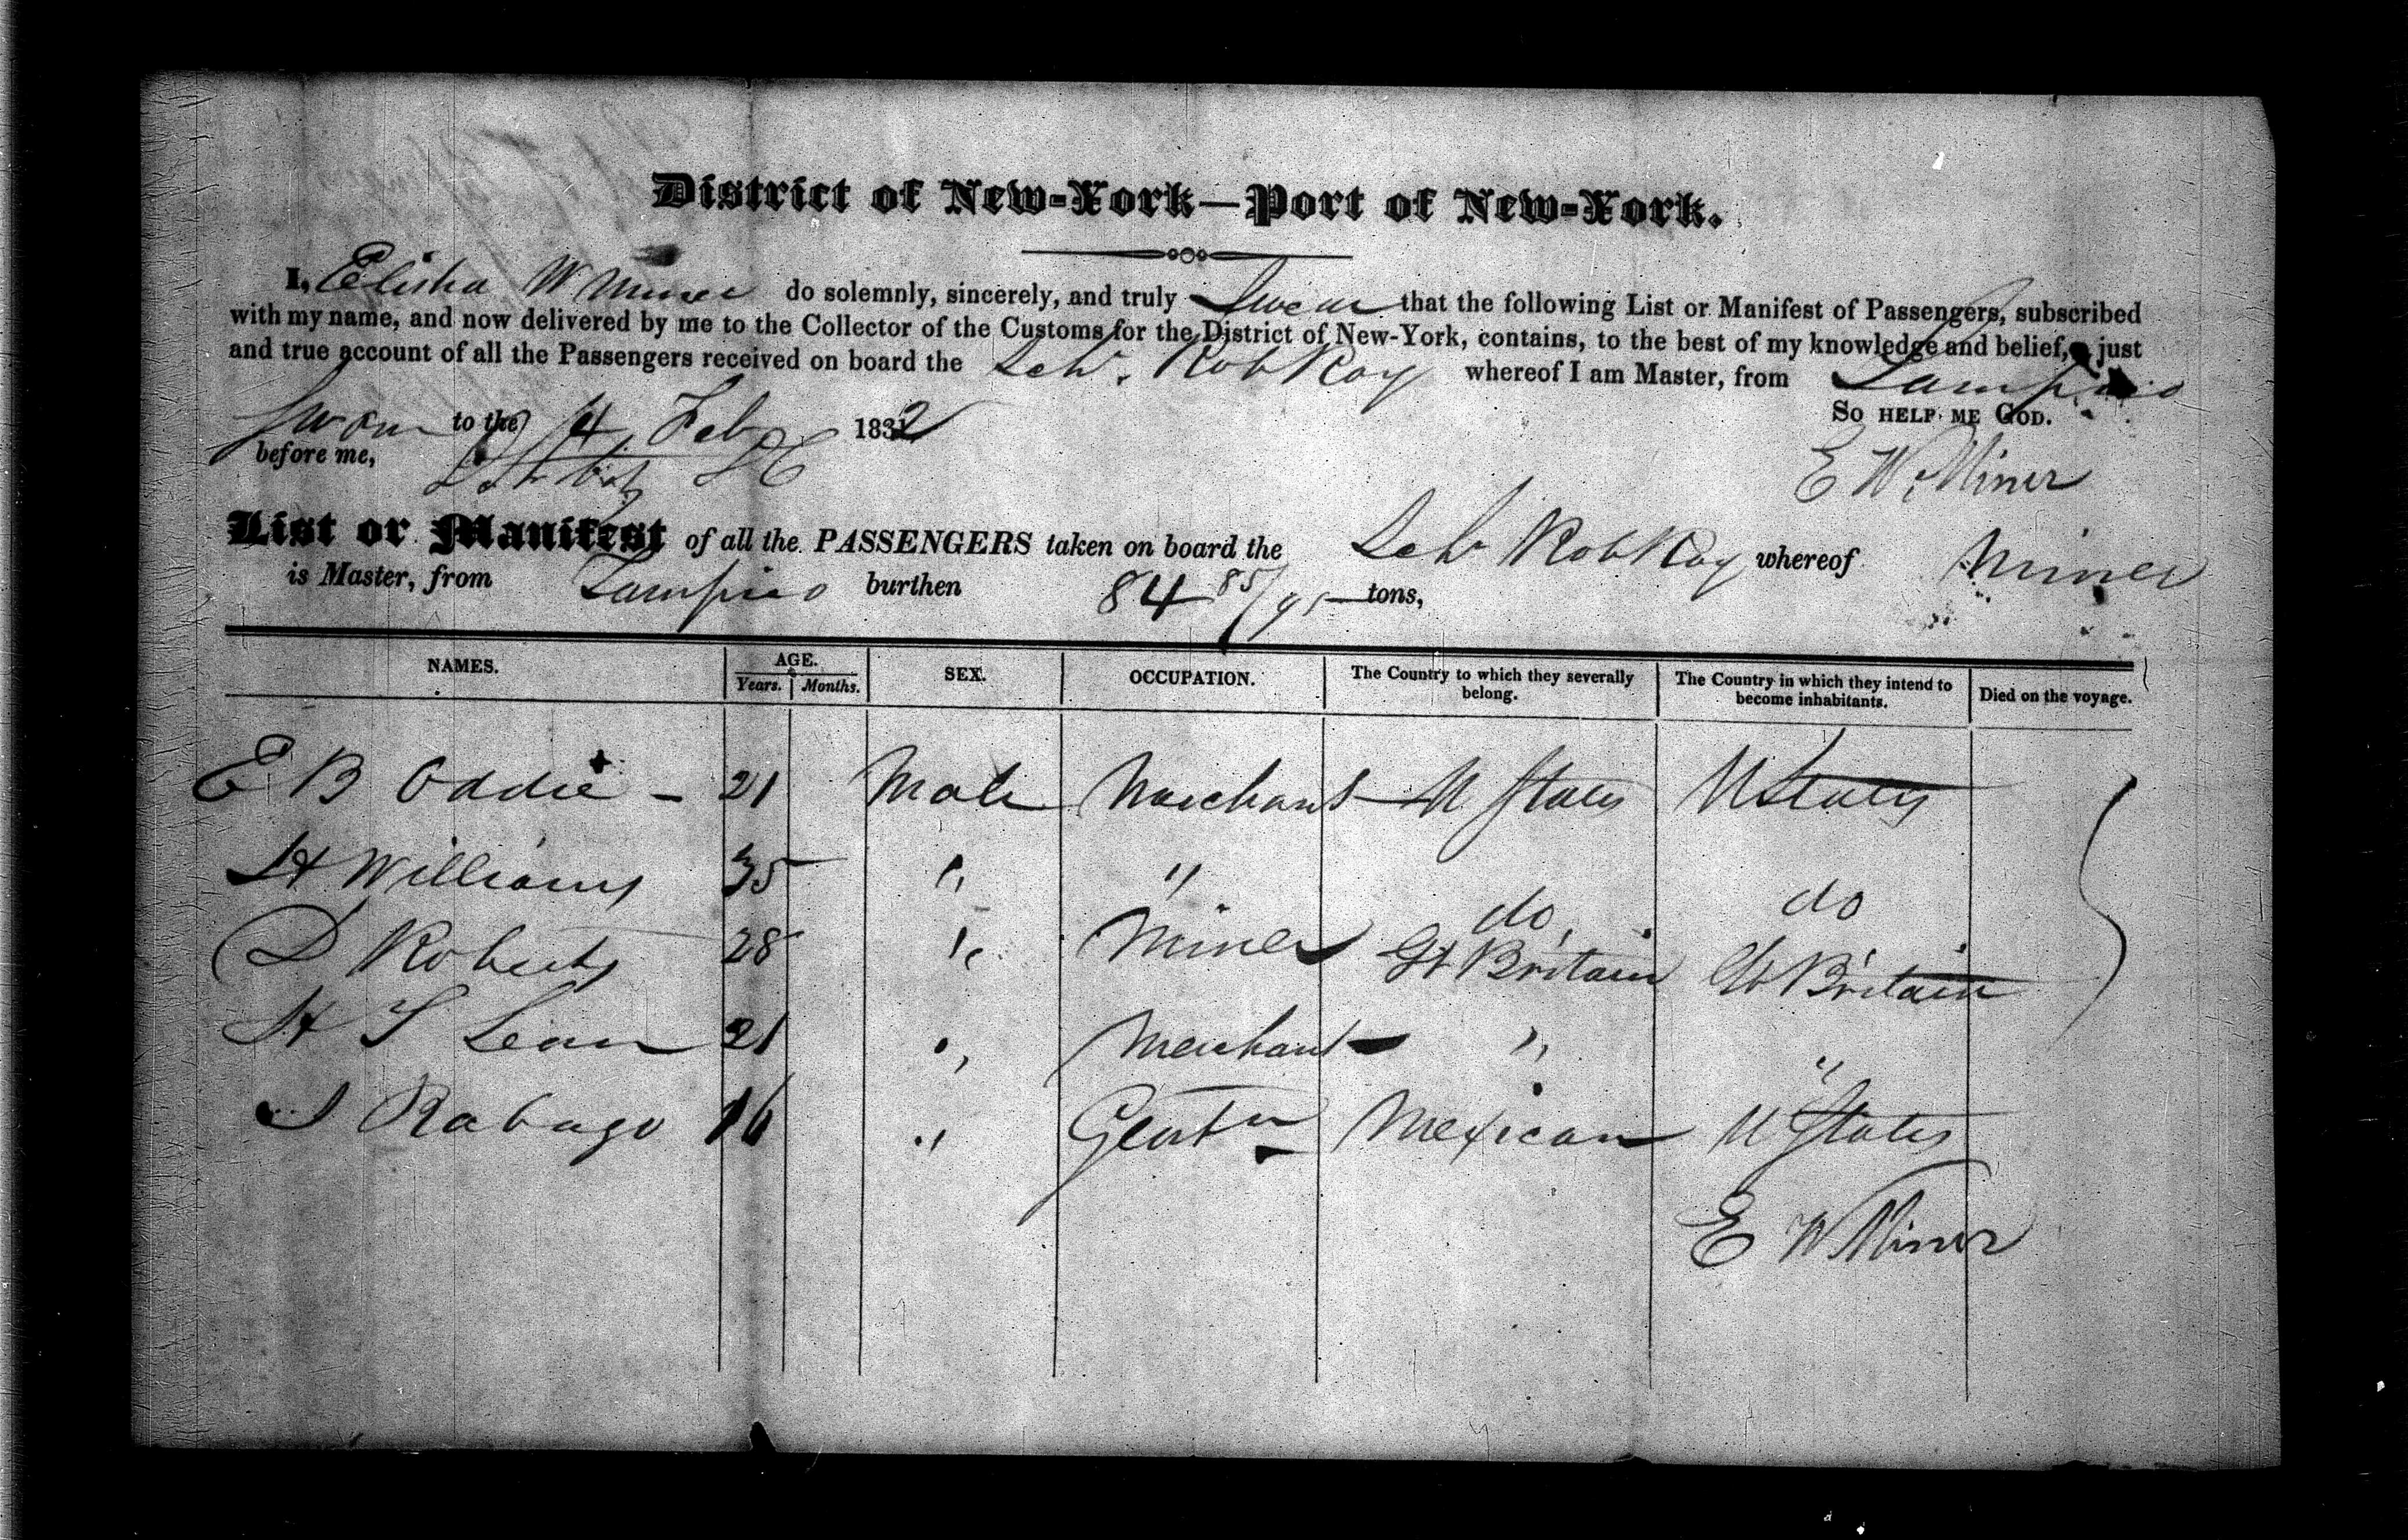 District of New-York—Port of New-York.
I, Elisha W Miner do solemnly, sincerely, and truly Swear that the following List or Manifest of Passengers, subscribed
with my name, and now delivered by me to the Collector of the Customs for the District of New-York, contains, to the best of my knowledge and belief, a just
and true account of all the Passengers received on board the Schr. Rob Roy whereof I am Master, from Tampico
SO HELP ME GOD.
Sworn to the 14 Feb 1832
before me,
E W Miner
List or Manifest of all the PASSENGERS taken on board the Schr Rob Roy whereof Miner
is Master, from Tampico burthen 84 85/95 tons,
NAMES. AGE. SEX. OCCUPATION. The Country to which they severally belong. The Country in which they intend to become inhabitants. Died on the voyage.
Years. Months.
E B Oddie - 21 Male Merchant U States U States
H Williams 35 " " do do
D Roberts 28 " Miner Gt Britain Gt Britain
H S Lean 21 " Merchant " "
J Rabago 16 " Gentn Mexican U States
E W Miner